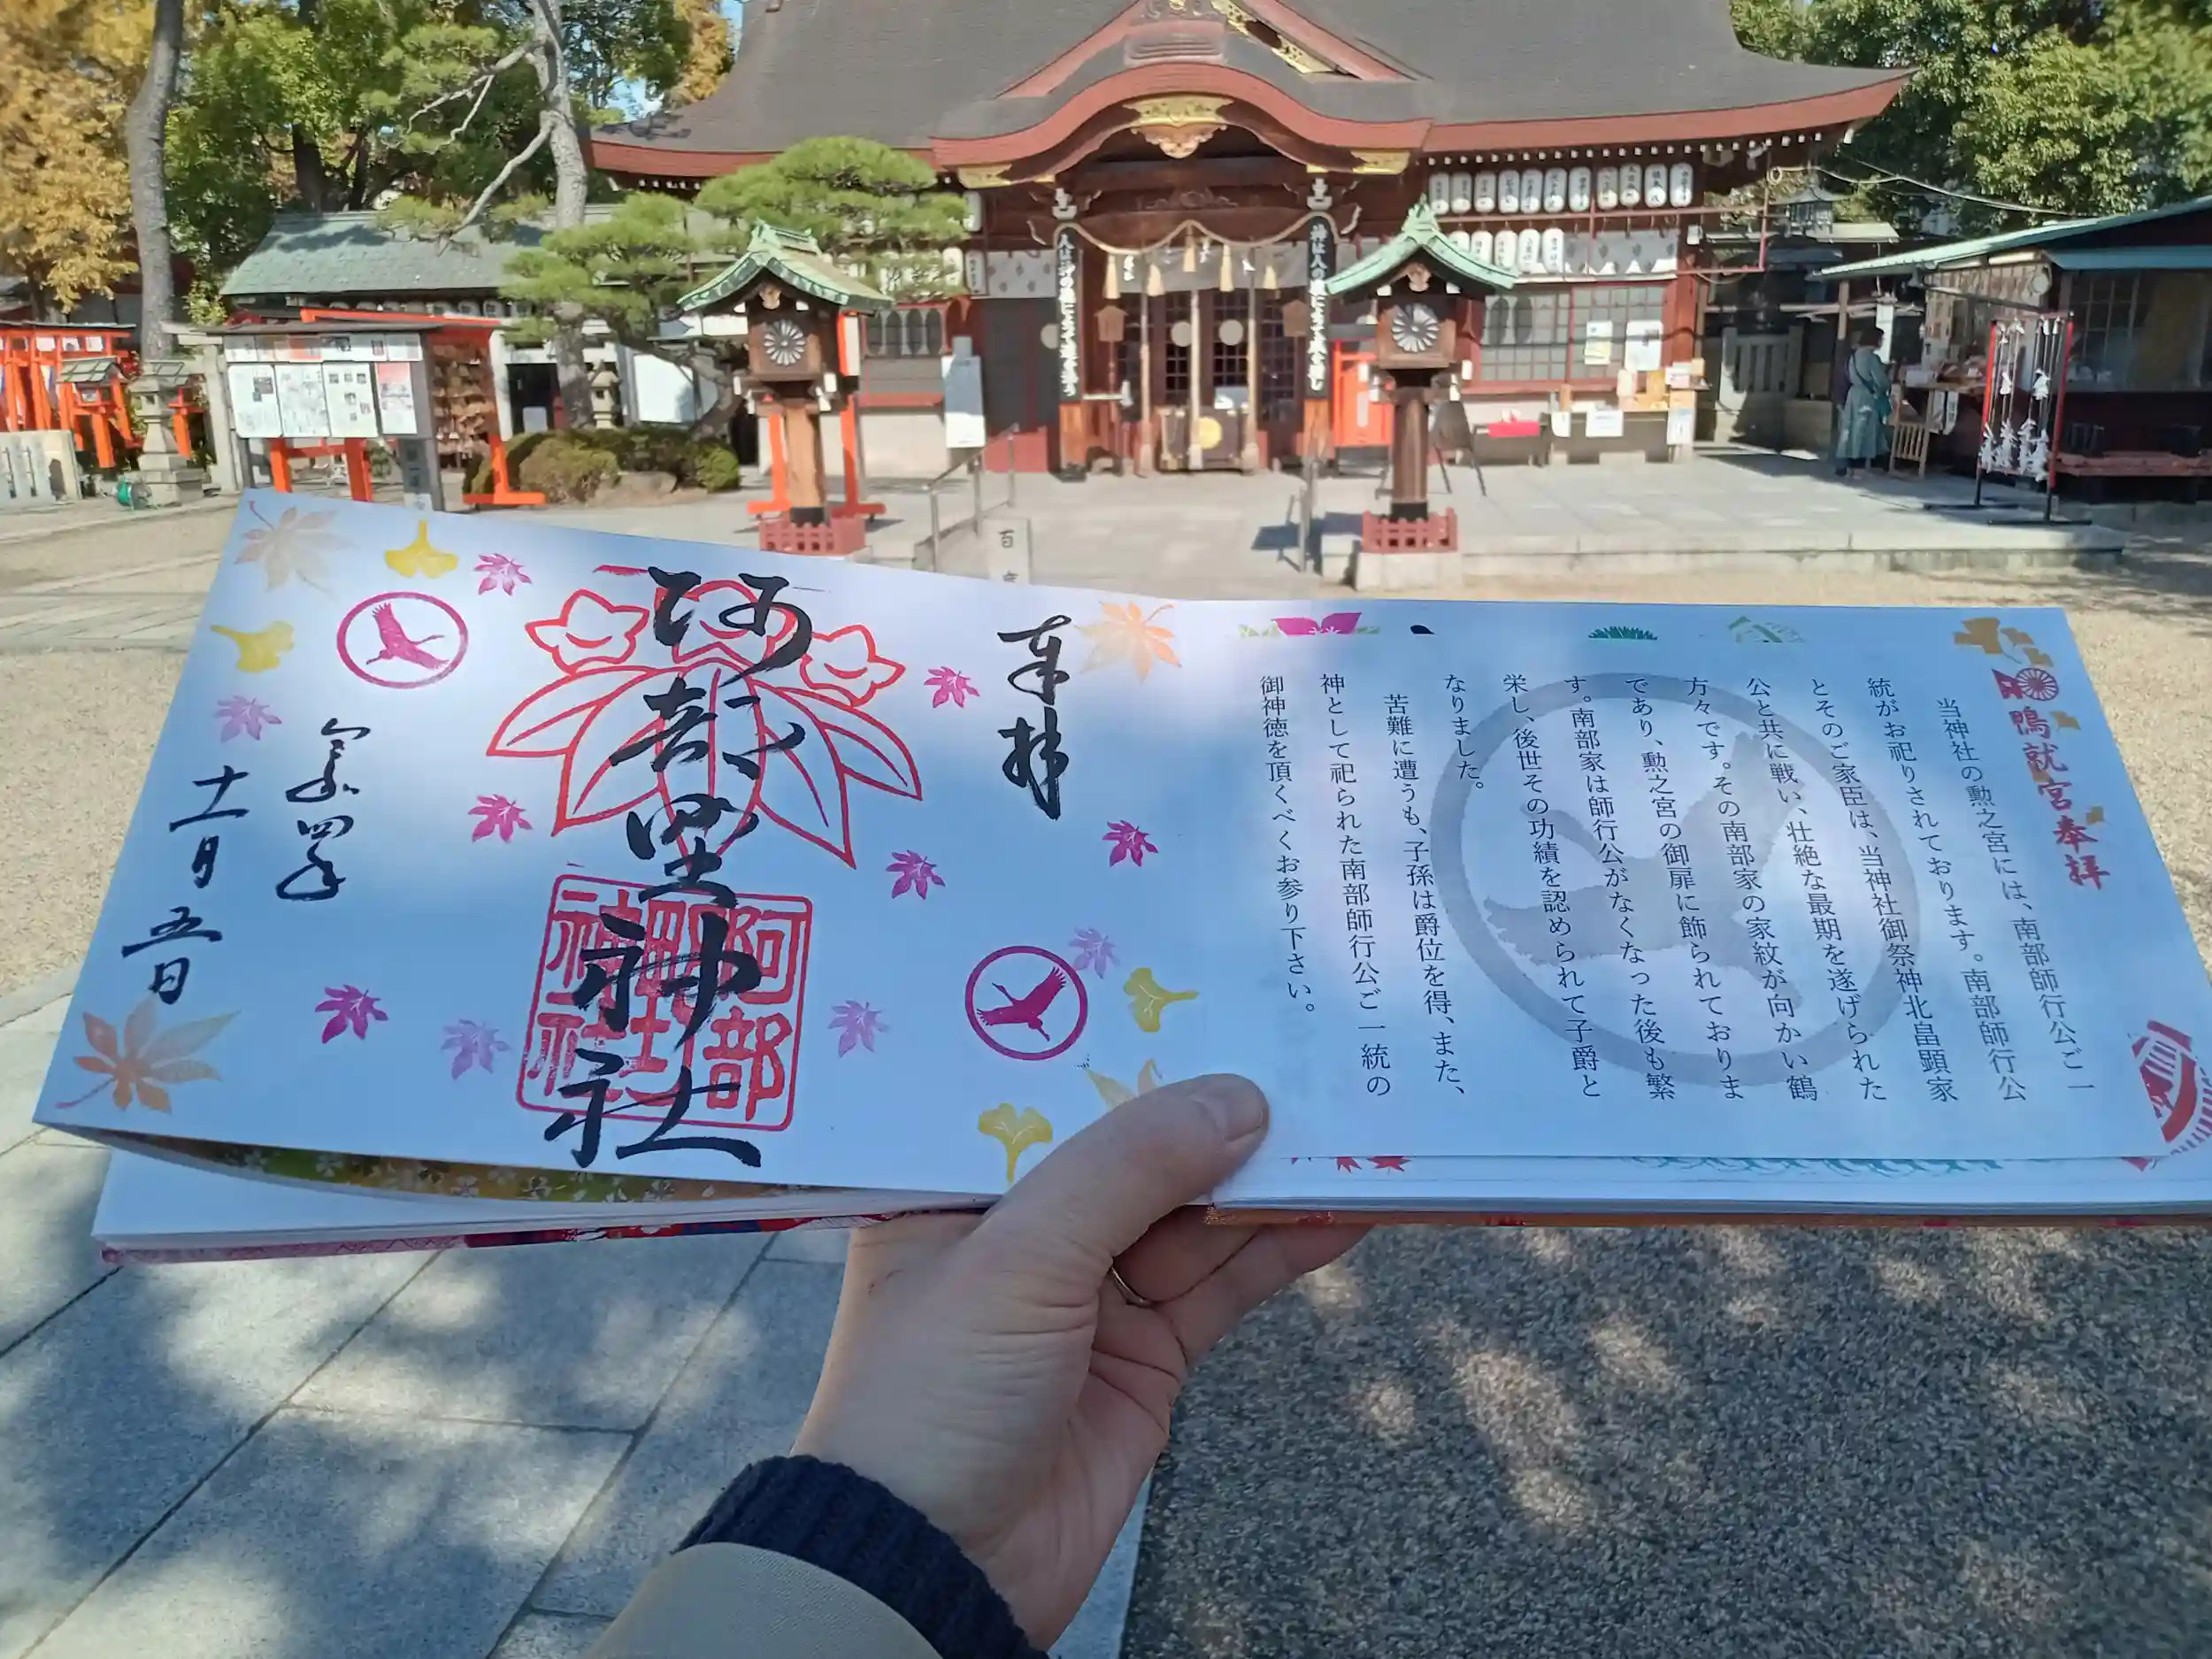 奉拝
阿部野神社
阿部野神社
令和四年
十一月五日
鴨就宮奉拝
当神社の勲之宮には、南部師行公ご一
統がお祀りされております。南部師行公
とそのご家臣は、当神社御祭神北畠顕家
公と共に戦い、壮絶な最期を遂げられた
方々です。その南部家の家紋が向かい鶴
であり、勲之宮の御扉に飾られておりま
す。南部家は師行公がなくなった後も繁
栄し、後世その功績を認められて子爵と
なりました。
苦難に遭うも、子孫は爵位を得、また、
神として祀られた南部師行公ご一統の
御神徳を頂くべくお参り下さい。
百